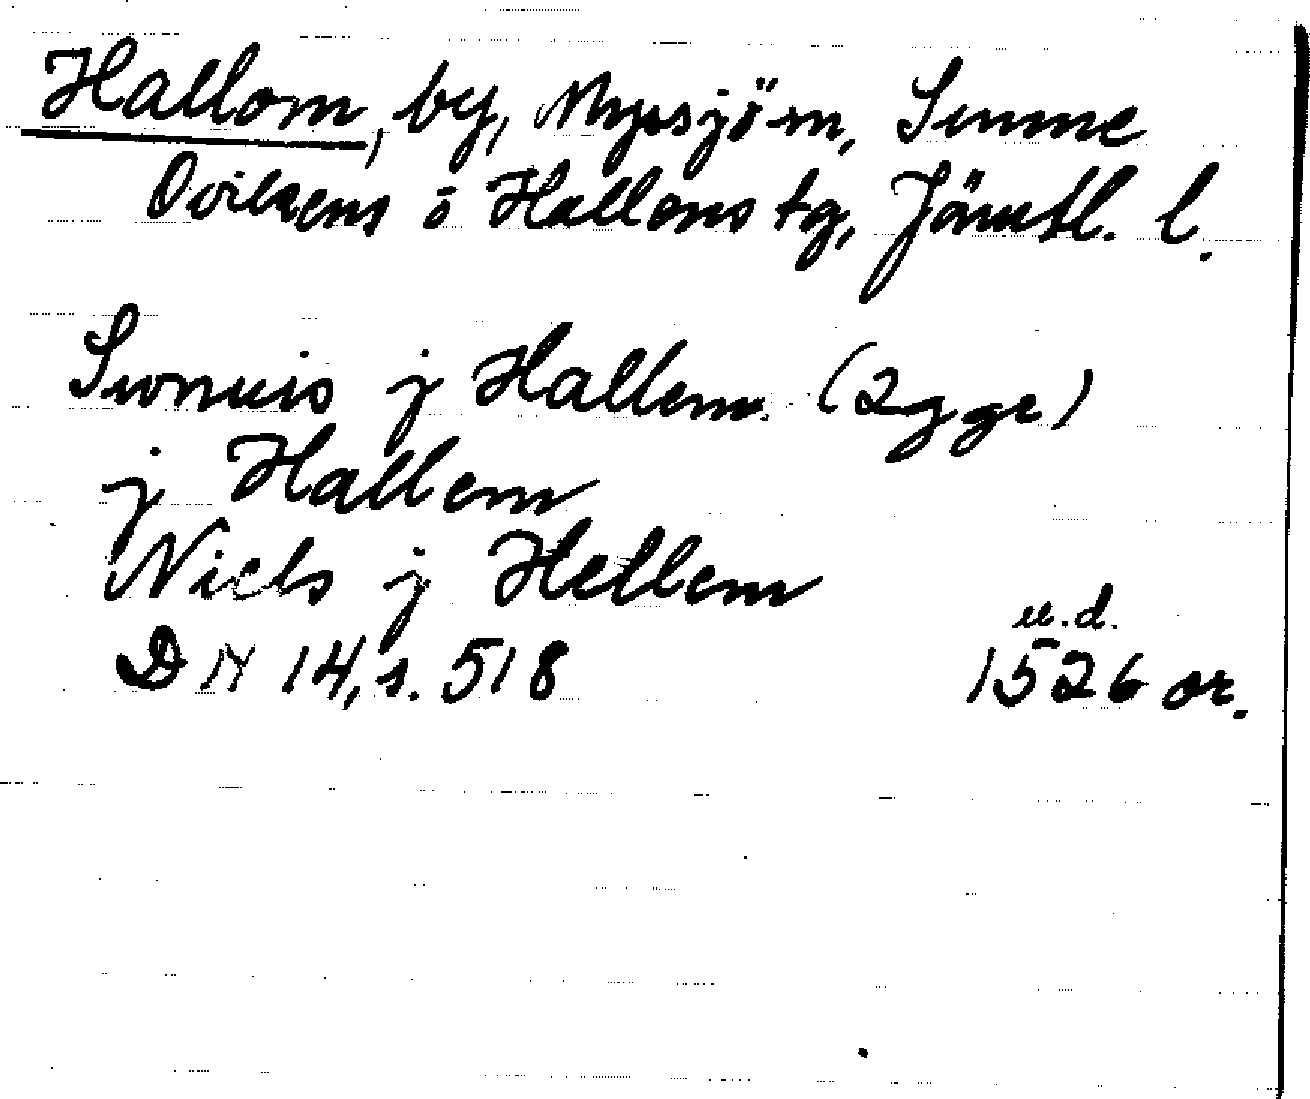 Hallom, by, Myssjö sn, Sunne
Ovikens o Hallens tg, Jämtl. l.
j Hallem (2 ggr)
j Hallem
Niels j Hellem
u.d.
DN 14, s. 518 1526 or.